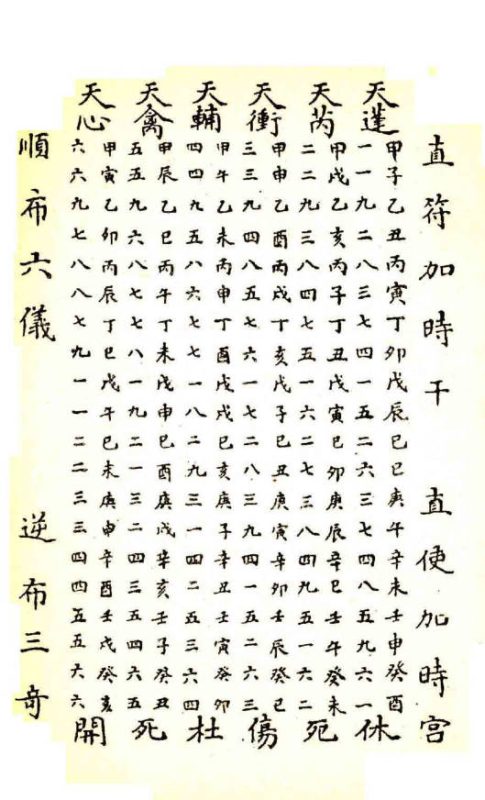 直符加時干 直使加時宮
天蓬
甲子乙丑丙寅丁卯戊辰己巳庚午辛未壬申癸酉
一一九二八三七四一五二六三七四八五九六一
休
天芮
甲戌乙亥丙子丁丑戊寅己卯庚辰辛巳壬午癸未
二二九三八四七五一六二七三八四九五一六二
死
天衝
甲申乙酉丙戌丁亥戊子己丑庚寅辛卯壬辰癸巳
三三九四八五七六一七二八三九四一五二六三
傷
天輔
甲午乙未丙申丁酉戊戌己亥庚子辛丑壬寅癸卯
四四九五八六七七一八二九三一四二五三六四
杜
天禽
甲辰乙巳丙午丁未戊申己酉庚戌辛亥壬子癸丑
五五九六八七七八一九二一三二四三五四六五
死
天心
甲寅乙卯丙辰丁巳戊午己未庚申辛酉壬戌癸亥
六六九七八八七九一一二二三三四四五五六六
開
順布六儀 逆布三奇